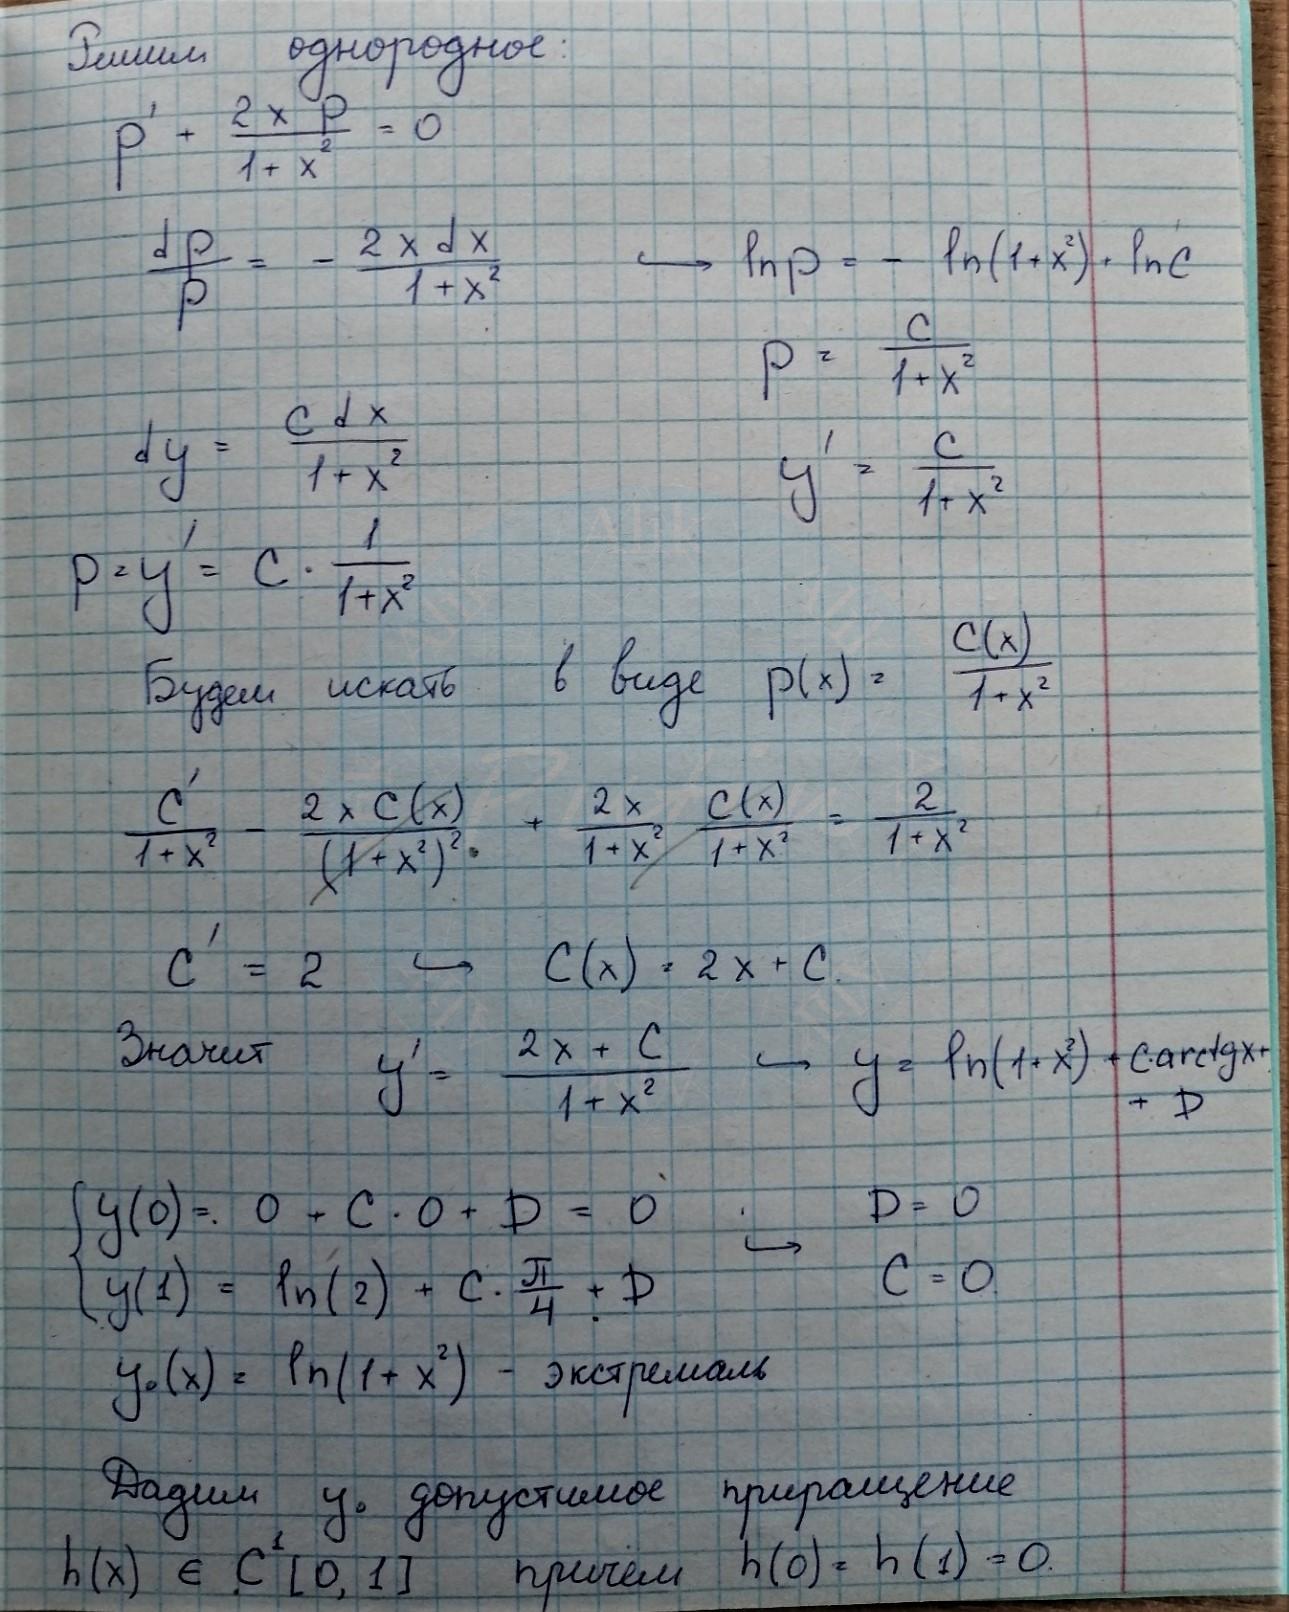 Решим однородное:
p' + 2xp/(1+x²) = 0
dp/p = - 2xdx/(1+x²) ↪ ln p = - ln(1+x²) + ln C
p = C/(1+x²)
dy = Cdx/(1+x²) y' = C/(1+x²)
p = y' = C · 1/(1+x²)
Будем искать в виде p(x) = C(x)/(1+x²)
C'/(1+x²) - 2xC(x)/(1+x²)² + 2x/(1+x²) C(x)/(1+x²) = 2/(1+x²)
C' = 2 ↪ C(x) = 2x + C.
Значит y' = (2x + C)/(1+x²) ↪ y = ln(1+x²) + C·arctgx +
+ D
{ y(0) = 0 + C·0 + D = 0 ↪ D = 0
y(1) = ln(2) + C·π/4 + D C = 0
y₀(x) = ln(1+x²) - экстремаль
Дадим y₀ допустимое приращение
h(x) ∈ C¹[0,1] причём h(0) = h(1) = 0.